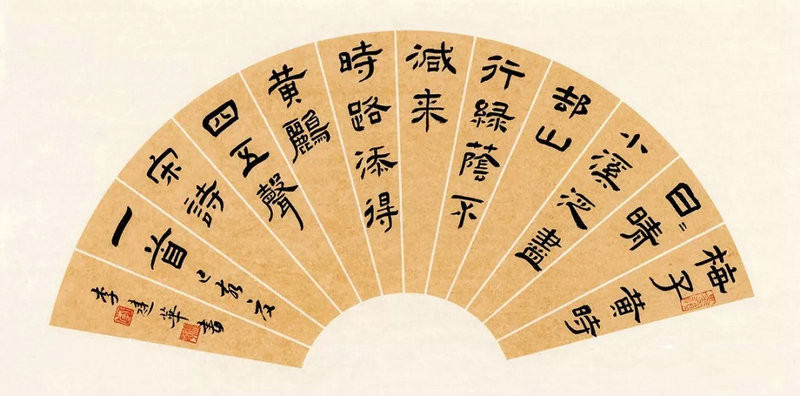 梅子黄時
日〻晴
小溪泛盡
却山
行緑蔭不
減来
時路添得
黄鸝
四五聲
宋詩
一首 己亥夏
李建華書